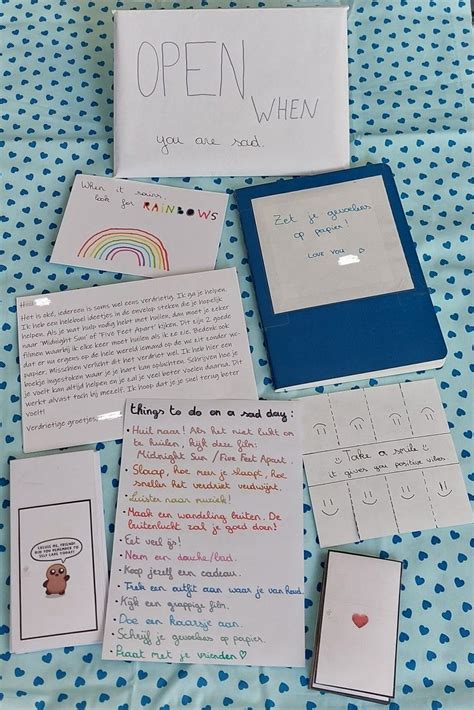 OPEN
WHEN
you are sad.
When it rains,
look for RAINBOWS
Zet je gevoelens
op papier!
LOVE YOU
Het is oké, iedereen is soms wel eens verdrietig. Ik ga je helpen.
Ik heb een heleboel ideetjes in de envelop steken die je hopelijk
helpen. Als je wat hulp nodig hebt met huilen, dan moet je zeker
naar 'Midnight Sun' of 'Five Feet Apart' kijken. Dit zijn 2 goede
films waarbij ik elke keer moet huilen als ik ze zie. Bedenk ook
dat er nu ergens op de hele wereld iemand op de wc zit zonder wc-
papier. Misschien verlicht dit het verdriet wel. Ik heb hier een
boekje ingestoken waar je je hart kan opluchten. Schrijven hoe je
je voelt kan altijd helpen en je zal je veel beter voelen daarna. Dit
werkt alvast toch bij mezelf. Ik hoop dat je je snel terug beter
voelt!
Verdrietige groetjes,
things to do on a sad day:
• Huil maar! Als het niet lukt om
te huilen, kijk deze film:
Midnight Sun / Five Feet Apart.
• Slaap, hoe meer je slaapt, hoe
sneller het verdriet verdwijnt.
• Luister naar muziek!
• Maak een wandeling buiten. De
buitenlucht zal je goed doen!
• Eet veel ijs!
• Neem een douche/bad.
• Koop jezelf een cadeau.
• Trek een outfit aan waar je van houd.
• Kijk een grappige film.
• Doe een kaarsje aan.
• Schrijf je gevoelens op papier.
• Praat met je vrienden ♡
Take a smile
it gives you positive vibes
EXCUSE ME, FRIEND!
DID YOU REMEMBER TO
SELF CARE TODAY?